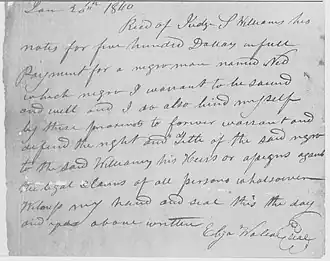 Jan 20th 1840
Recd of Judge S Williams his
notes for five hundred Dollars in full
Payment for a negro man named Ned
which negro I warrant to be sound
and well and I do also bind myself
by these presents to forever warrant and
defend the right and Title of the said negro
to the said Williams his Heirs or assigns against
the legal Claims of all persons whatsoever
Witness my hand and seal this the day
and year above written
Seal